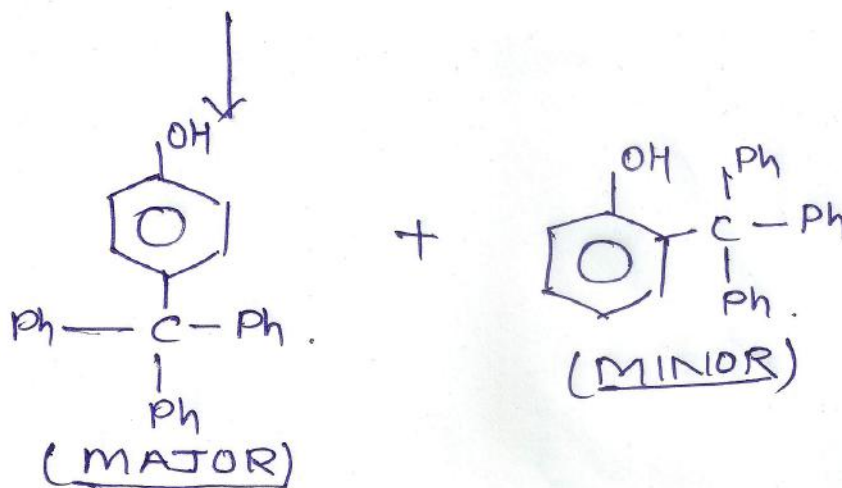 OH
Ph — C — Ph .
Ph
(MAJOR)
+
OH
Ph
C — Ph
Ph .
(MINOR)